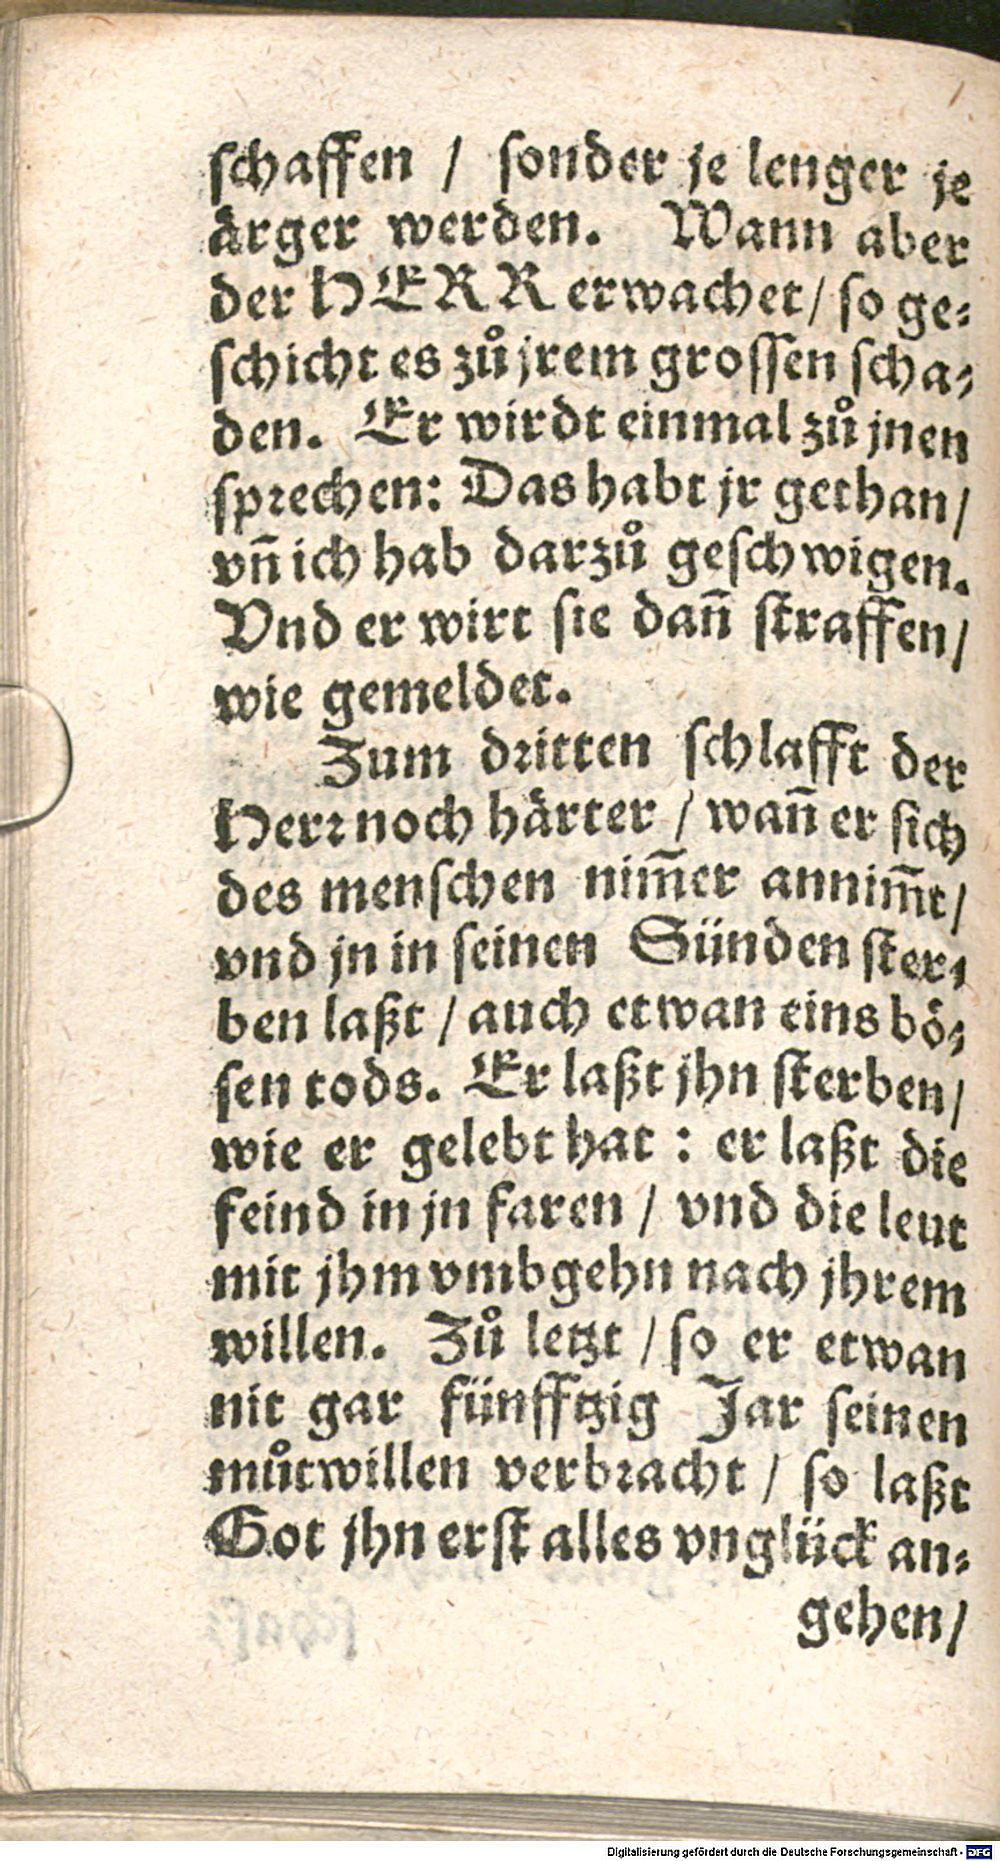 schaffen / sonder je lenger je
ärger werden. Wann aber
der HERR erwachet / so ge⸗
schicht es zů jrem grossen scha⸗
den. Er wirdt einmal zů jnen
sprechen: Das habt jr gethan /
vn̄ ich hab darzů geschwigen.
Vnd er wirt sie dan̄ straffen /
wie gemeldet.
Zum dritten schlafft der
Herr noch härter / wan̄ er sich
des menschen nim̄er annim̄t /
vnd jn in seinen Sünden ster⸗
ben laßt / auch etwan eins bö⸗
sen tods. Er laßt jhn sterben /
wie er gelebt hat : er laßt die
feind in jn faren / vnd die leut
mit jhm vmbgehn nach jhrem
willen. Zů letzt / so er etwan
nit gar fünfftzig Jar seinen
můtwillen verbracht / so laßt
Got jhn erst alles vnglück an⸗
gehen /
Digitalisierung gefördert durch die Deutsche Forschungsgemeinschaft - DFG